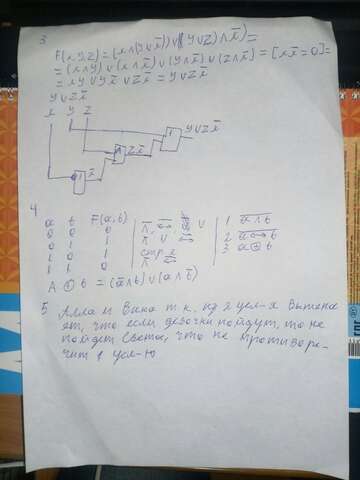 3
F(x,y,z) = (x∧(y∪x̄))∪((y∪z)∧x̄) =
= (x∧y)∪(x∧x̄)∪(y∧x̄)∪(z∧x̄) = [xx̄=0] =
= xy∪yx̄∪zx̄ = y∪zx̄
y∪zx̄
x y z
y∪zx̄
zx̄
x̄
4
a b F(a,b)
0 0 0
0 1 1
1 0 1
1 1 0
1 a∧b
2 a↔b
3 a⊕b
A ⊕ b = (ā∧b)∪(a∧b̄)
5 Алла и Вика т.к. из 2 усл-я вытека
ет, что если девочки пойдут, то не
пойдет Света, что не противоре-
чит 1 усл-ю